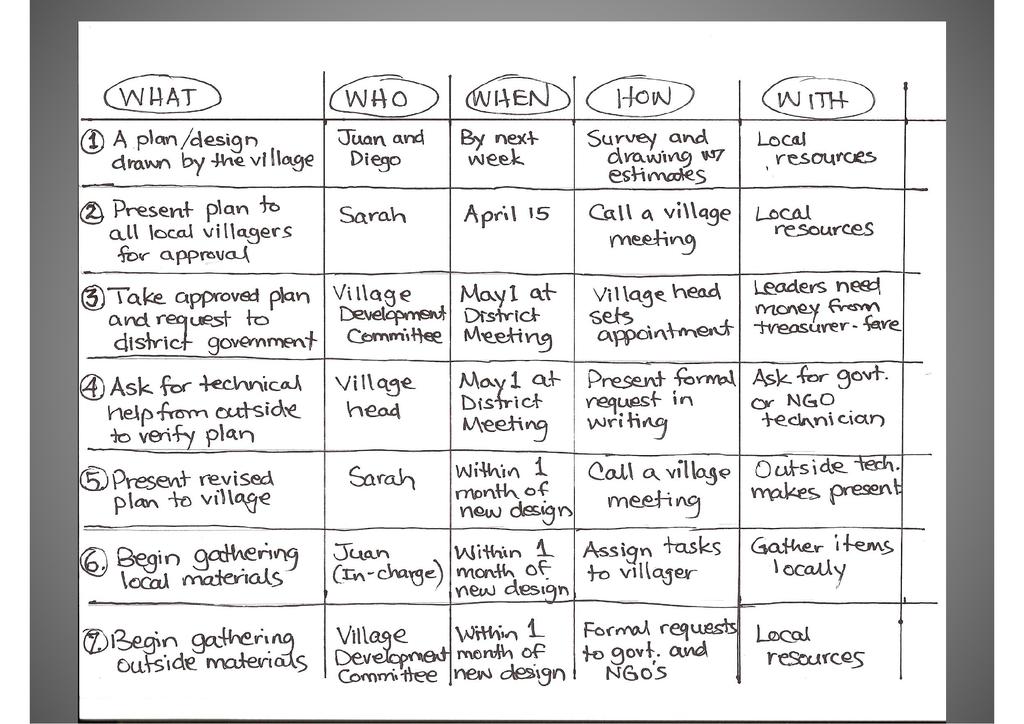 WHAT WHO WHEN HOW WITH
① A plan/design
drawn by the village
Juan and
Diego
By next
week
Survey and
drawing w/
estimates
Local
resources
② Present plan to
all local villagers
for approval
Sarah
April 15
Call a village
meeting
Local
resources
③ Take approved plan
and request to
district government
Village
Development
Committee
May 1 at
District
Meeting
Village head
sets
appointment
Leaders need
money from
treasurer - fare
④ Ask for technical
help from outside
to verify plan
Village
head
May 1 at
District
Meeting
Present formal
request in
writing
Ask for govt.
or NGO
technician
⑤ Present revised
plan to village
Sarah
Within 1
month of
new design
Call a village
meeting
Outside tech.
makes present
⑥ Begin gathering
local materials
Juan
(In-charge)
Within 1
month of
new design
Assign tasks
to villager
Gather items
locally
⑦ Begin gathering
outside materials
Village
Development
Committee
Within 1
month of
new design
Formal requests
to govt. and
NGO's
Local
resources